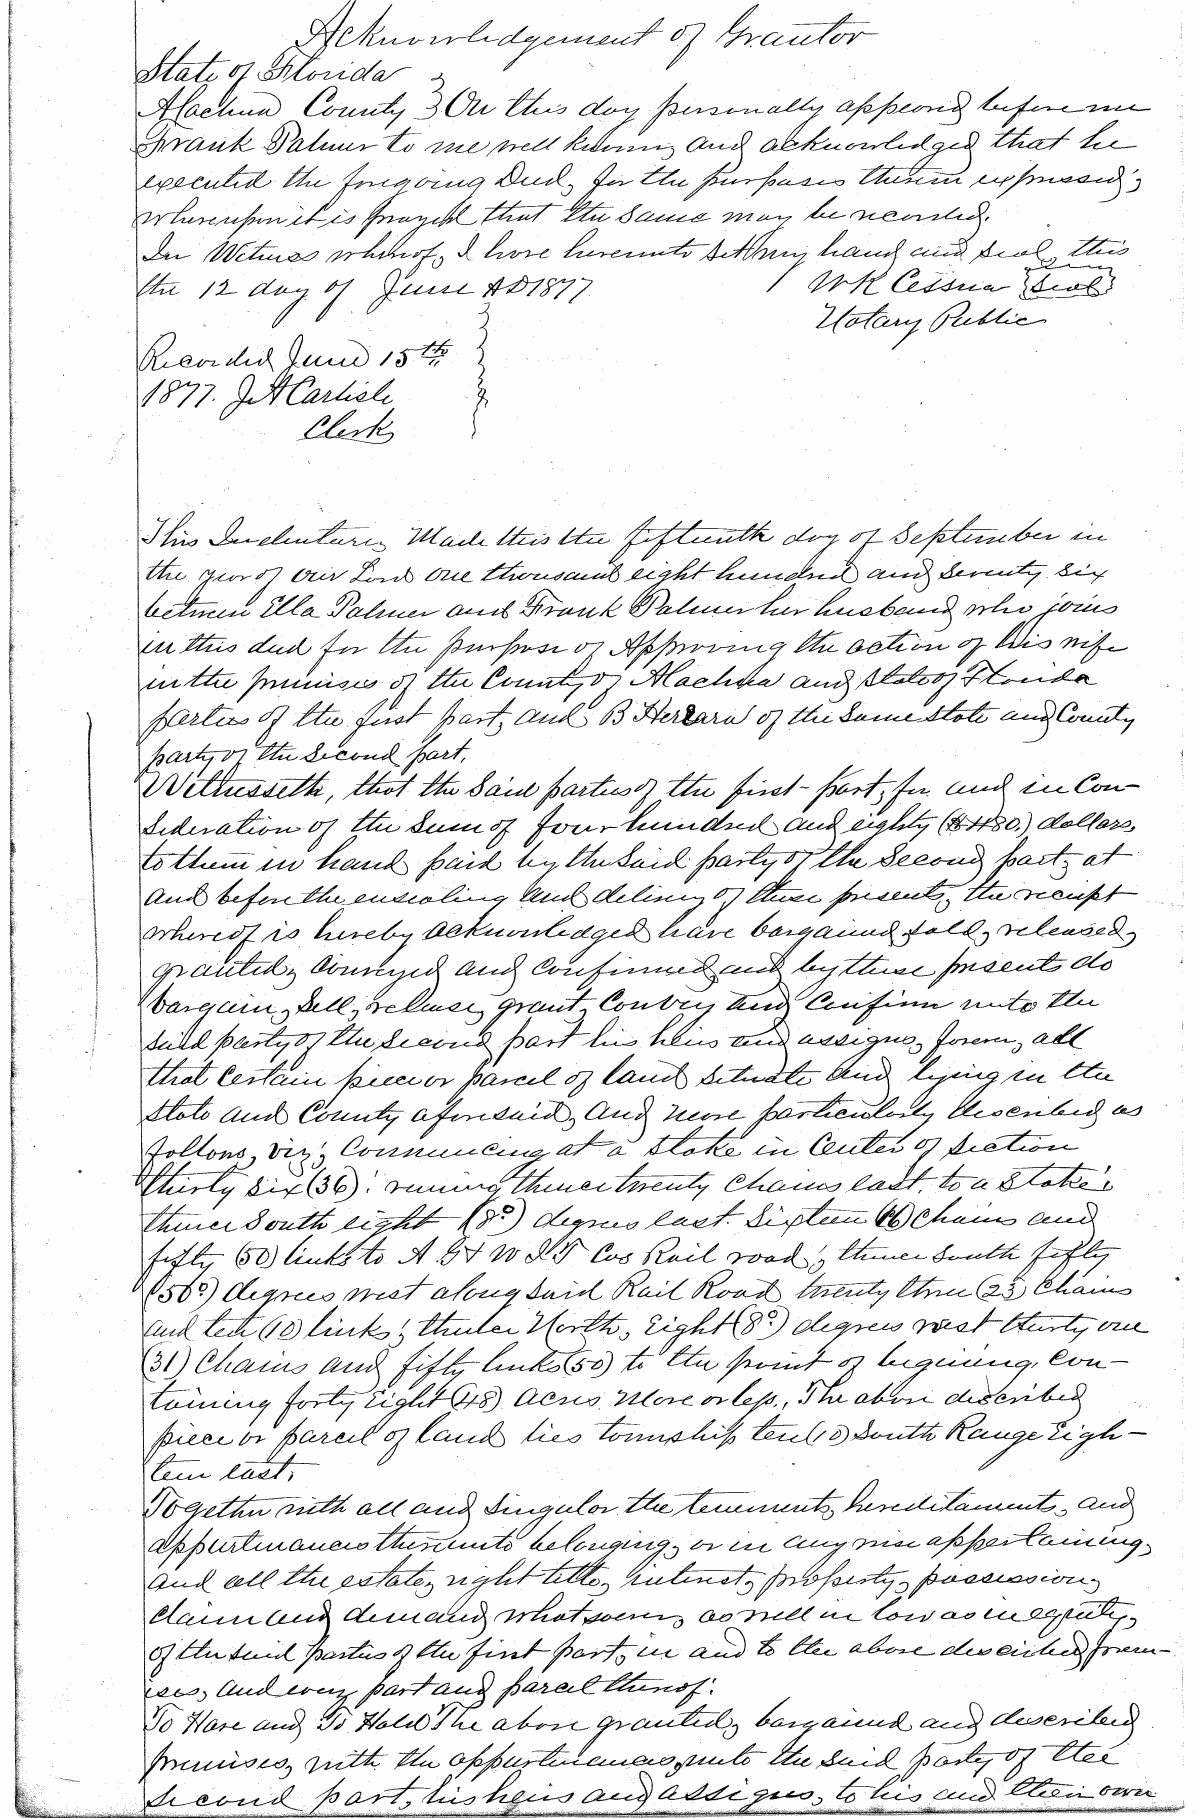 Acknowledgement of Grantor
State of Florida
Alachua County } On this day personally appeared before me
Frank Palmer to me well known, and acknowledged that he
executed the foregoing Deed, for the purposes therein expressed;
whereupon it is prayed that the same may be recorded.
In Witness whereof, I have hereunto set my hand and seal, this
the 12 day of June AD 1877. WK Cessna Seal
Notary Public
Recorded June 15th
1877. J A Carlisle
Clerk
This Indenture, Made this the fifteenth day of September in
the year of our Lord one thousand eight hundred and seventy six
between Ella Palmer and Frank Palmer her husband who joins
in this deed for the purpose of Approving the action of his wife
in the premises of the County of Alachua and State of Florida
parties of the first part, and B Herrara of the same State and County
party of the second part.
Witnesseth, that the said parties of the first-part, for and in Con-
sideration of the sum of four hundred and eighty ($480.) dollars,
to them in hand paid by the said party of the second part, at
and before the ensealing and delivery of these presents, the receipt
whereof is hereby acknowledged have bargained sold, released,
granted, conveyed and confirmed and by these presents do
bargain, sell, release, grant, Convey and Confirm unto the
said party of the second part his heirs and assigns, forever, all
that certain piece or parcel of land situate and lying in the
State and County aforesaid, and more particularly described as
follows, viz; Commencing at a stake in Center of Section
thirty six (36): running thence twenty chains east, to a stake;
thence South eight (8°) degrees east. Sixteen (16) chains and
fifty (50) links to A. G & W I T Cos Rail road; thence South fifty
(50°) degrees west along said Rail Road twenty three (23) Chains
and ten (10) links; thence North, Eight (8°) degrees west thirty one
(31) Chains and fifty links (50) to the point of beginning, Con-
taining forty Eight (48) Acres More or less, The above described
piece or parcel of land lies township ten (10) South Range Eigh-
teen east.
Together with all and Singular the tenements, hereditaments, and
appurtenances thereunto belonging, or in any wise appertaining,
and all the estate, right title, interest, property, possession,
claim and demand whatsoever, as well in law as in equity,
of the said parties of the first part, in and to the above described prem-
ises, and every part and parcel thereof.
To Have and To Hold The above granted, bargained and described
premises, with the appurtenances, unto the said party of the
second part, his heirs and assigns, to his and their own